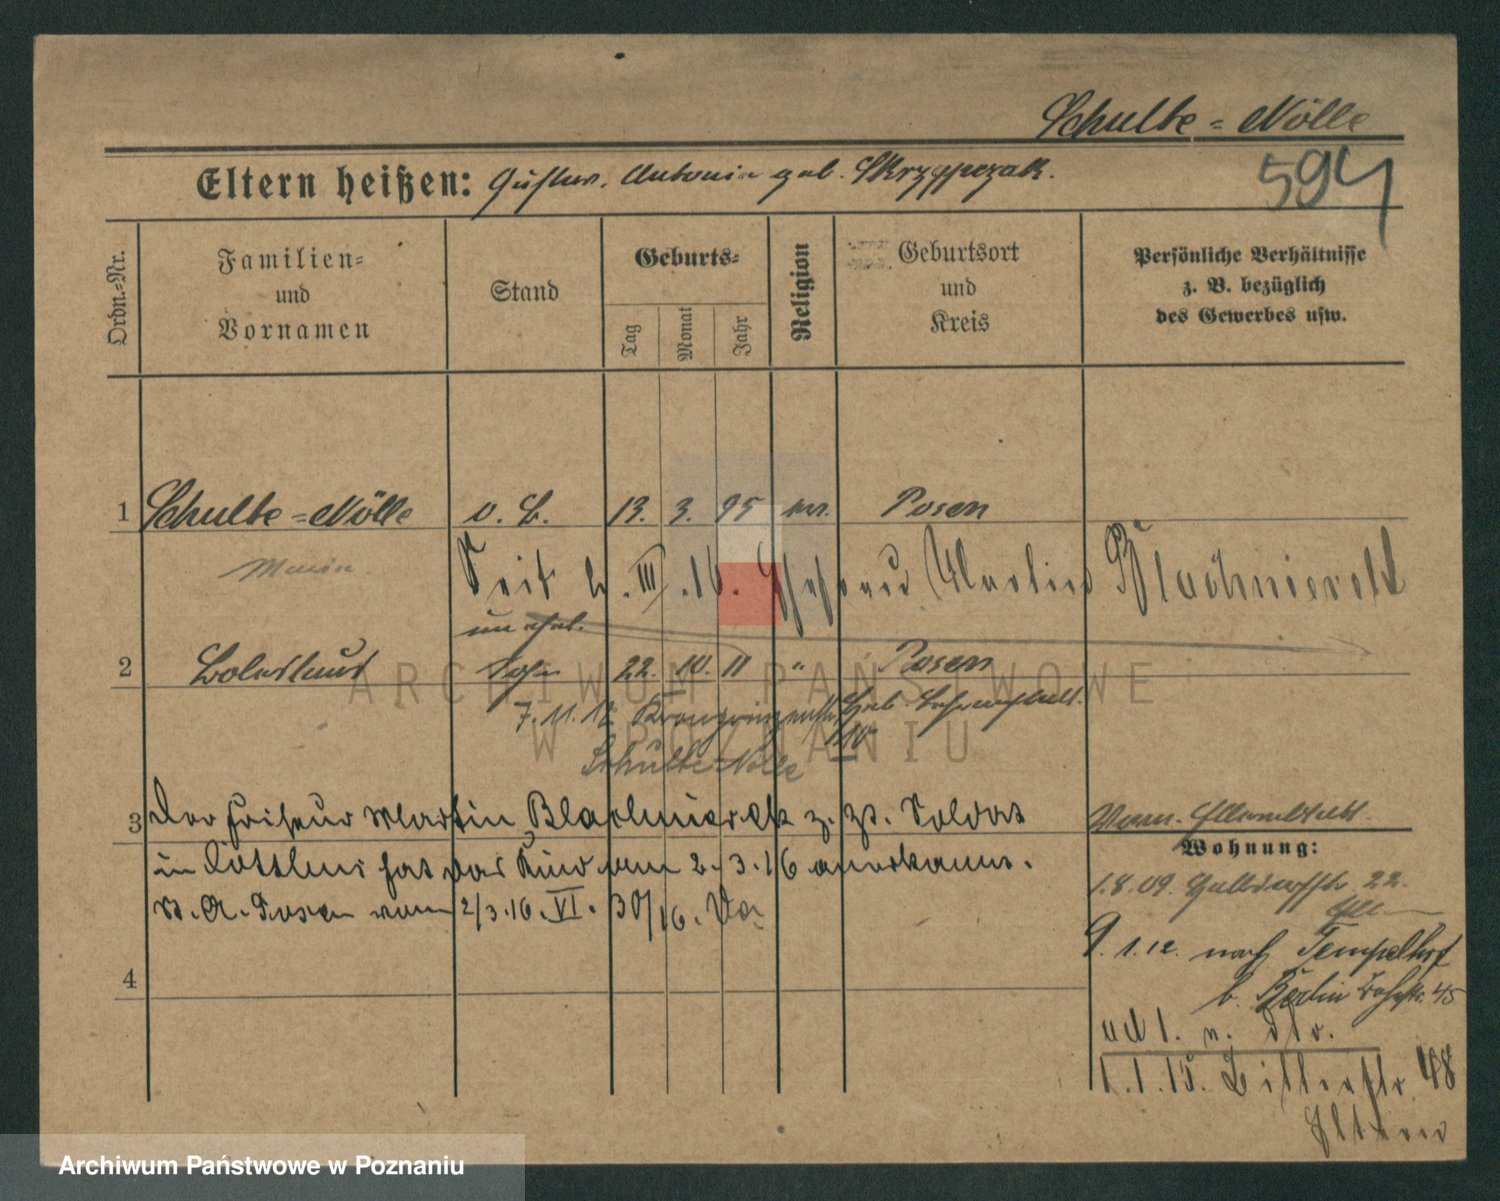 Schulte=Nölle
594
Eltern heißen: Gustav, Antonia geb. Skrzypczak.
Ordn.-Nr.
Familien-
und
Vornamen
Stand
Geburts-
Tag
Monat
Jahr
Religion
Geburtsort
und
Kreis
Persönliche Verhältnisse
z. B. bezüglich
des Gewerbes usw.
1 Schulte=Nölle o. B. 13. 3. 95 Posen
Maria
Seit 2. III. 16. Ehefrau
un ehel.
2 Boleslaus Sohn 22. 10. 11 " Posen
7. 11. 12 Geb.
Schulte-Nölle
3 Der Friseur Martin z. Zt. Soldat
in hat das Kind am 2. 3. 16 anerkannt.
St. A. Posen vom 2/3. 16. VI. 30/16.
4
Wohnung:
1.8.09. 22.
9. 1. 12. nach Tempelhof
b. Berlin 45
ad 1. n. dto.
1.1.15. 48
Eltern
ARCHIWUM PAŃSTWOWE
W POZNANIU
Archiwum Państwowe w Poznaniu